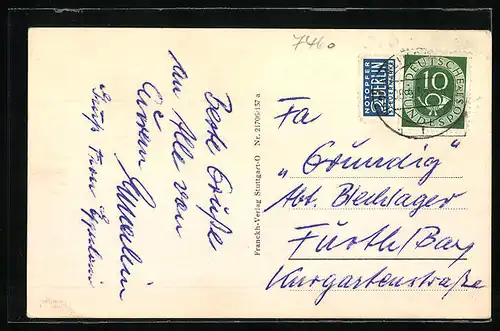 7460
Beste Grüße
an Alle von
Eurem
Franckh-Verlag Stuttgart-O Nr. 21706/157 a
NOTOPFER
2 BERLIN
STEUERMARKE
10
DEUTSCHE
BUNDESPOST
Fa
„Grundig"
Abt. Blechlager
Fürth/Bay
Kurgartenstraße